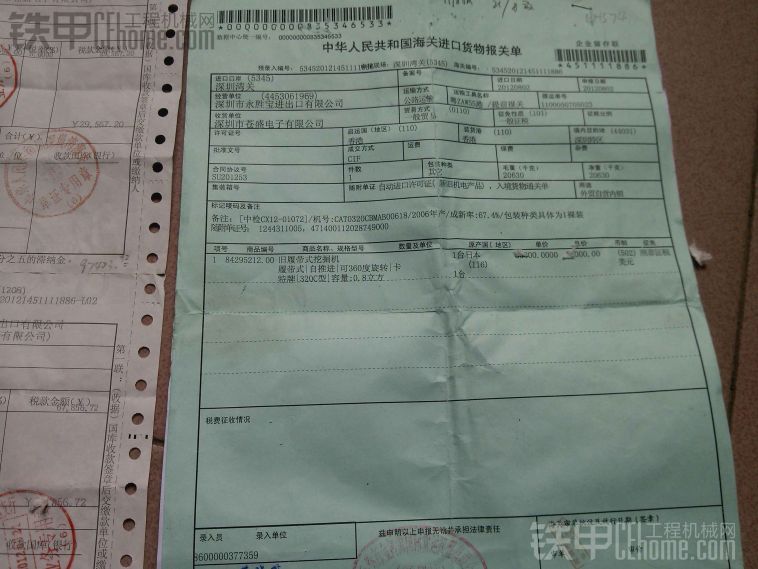 铁甲工程机械网
Cthome.com
*000000000835346533*
数据中心统一编号: 000000000835346533
中华人民共和国海关进口货物报关单
企业留存联
预录入编号: 534520121451111886
深圳湾关(5345)
海关编号: 534520121451111886
*451111886*
进口口岸 (5345)
深圳湾关
备案号
进口日期
20120802
申报日期
20120802
经营单位 (4453061969)
深圳市永胜宝进出口有限公司
运输方式
公路运输
运输工具名称
提运单号
收货单位
深圳市苍盛电子有限公司
贸易方式 (0110)
一般贸易
征免性质 (101)
一般征税
征税比例
许可证号
启运国(地区) (110)
香港
装货港 (110)
香港
境内目的地 (44031)
深圳特区
批准文号
成交方式
CIF
运费
保费
杂费
合同协议号
SU201253
件数
1
包装种类
其它
毛重(千克)
20630
净重(千克)
20630
集装箱号
随附单证
自动进口许可证(新旧机电产品), 入境货物通关单
用途
外贸自营内销
标记唛码及备注
备注: [中检CX12-01072]/机号:CAT0320CBMAB00618/2006年产/成新率:67.4%/包装种类具体为1裸装
随附单证号: 1244311005, 471400112028749000
项号 商品编号 商品名称、规格型号 数量及单位 原产国(地区) 单价 总价 币制 征免
1 84295212.00 旧履带式挖掘机 1台 日本 (502) 照章征税
履带式|自推进|可360度旋转|卡 (116) 美元
特牌|320C型|容量:0.8立方 1台
税费征收情况
录入员 录入单位
兹申明以上申报无讹并承担法律责任
8600000377359
合计(¥)
¥ 29,567.20
收款国库(银行)
国库收款签章后交缴款单位或缴纳人
分之五的滞纳金.
20121451111886-L02
出口有限公司
有限公司)
第一联:(收据)国库收款签章后交缴款单位或缴
税款金额(¥)
67,856.72
收款国库(银行)
铁甲工程机械网
Cthome.com